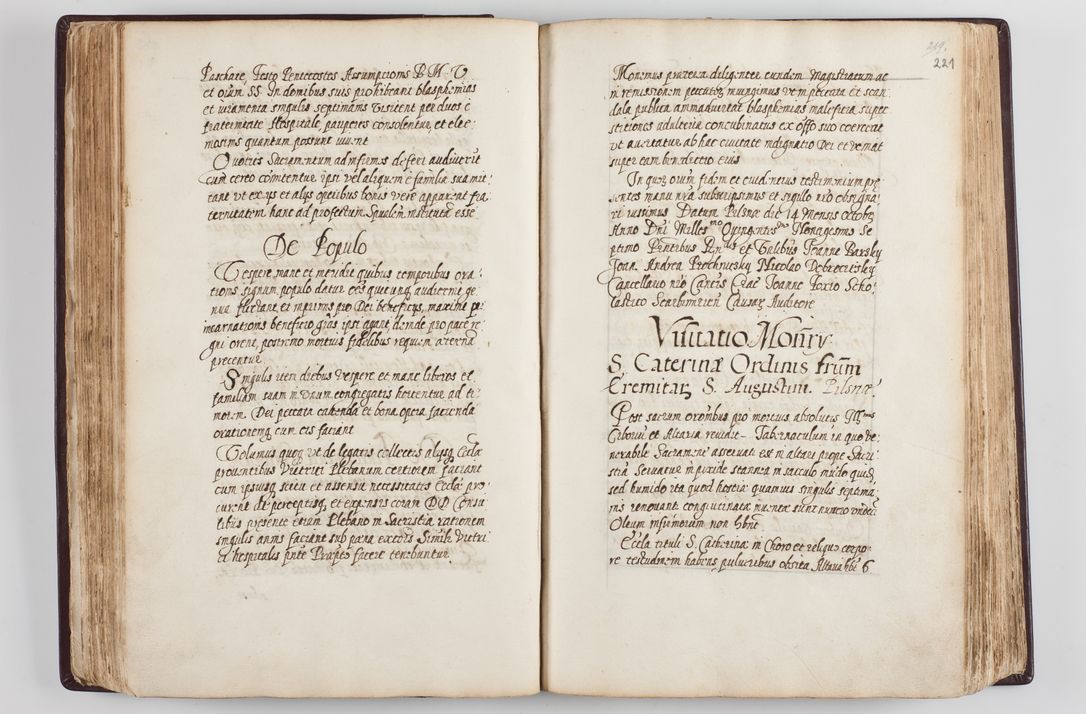 Paschate, Festo Pentecostes Assumptionis B M V
et oium SS. In domibus suis prohibeant blasphemias
et iuramenta singulis septimanis visitent per duos è
fraternitate Hospitale, pauperes consolentur, et elee
mosinis quantum possunt iuuent
Quotiès Sacramentum ad infirmos deferi audiuerit
cum cereo comitentur ipsi vel aliquem è familia sua mit
tant vt ex ijs et alijs operibus bonis verè appareat fra
ternitatem hanc ad profectum Spualem institutã esse
De Populo
Vesperè, manè et meridiè quibus temporibus ora
tionis signum populo datur oēs quicunq audierint ge
nua flectant et imprimis pro Dei beneficijs, maximè pr
incarnationis beneficio grãs ipsi agant, deinde pro pace re
gni orent, postremo mortuis fidelibus requiem aeternã
precentur
Singulis item diebus Vesperè et manè liberos et
familiam suam in vnum congregatis hortentur ad ti
morem Dei peccata cauenda et bona opera facienda
orationemq cum eis faciant
Volumus quoq vt de legatis collectis alijsq Eccłæ
prouentibus Vitrici Plebanum certiorem faciant
cum ipsiusq scitu et assensu necessitates Eccłæ pro
curent de perceptisq et expensis coram DD Consu
libus presente etiam Plebano in Sacristia rationem
singulis annis faciant sub pæna excõis Similr Vitrici
et hospitalis ante Præpto facere tenebuntur
219.
221
Monemus præterea diligenter eundem Magistratum ac
in remissionem peccatoꝝ iniungimus vt in peccata et scan
dala publica animaduertat blasphemias maleficia super
stitiones adulteria concubinatus ex offo suo coerceat
vt auertatur ab hac ciuitate indignatio Dei et veniat
super eam benedictio eius
In quoꝝ oium fidem et euidentius testimonium prę
sentes manu nrã subscripsimus et sigillo nrõ obsigna
ri iussimus Datum Pilsnæ die 14 Mensis Octobꝝ
Anno Dni Milles^mo Quingentes^mo Nonagesimo Se
ptimo Pentibus Ven^libus et Gnlibus Joanne Barsky
Joan. Andrea Prochniesky Nicolao Debrocieski
Cancellario nrõ Canciis Crac Joanne Foxio Scho
lastico Scarbimirien Causaꝝ Auditore
Visitatio Monrÿ
S. Caterinæ Ordinis frum
Eremitaꝝ S. Augustini. Pilsnæ
Post sacrum orõnibus pro mortuis absolutis Illmus
Ciborium et Altaria reuidit – Tabernaculum in quo Ve
nerabile Sacramentũ asseruatur est in altari propè Sacri
stiã Seruatur in pixide stannea in sacculo mũdo quidẽ
sed humido ita quod hostiæ quamuis singulis septima
nis renouant conglutinatæ inuentæ sunt
Oleum infirmorum non hñt
Eccła tituli S. Catherinæ in Choro et reliquo corpo
re testudinem habens pulueribus obsita Altaria hñt 6